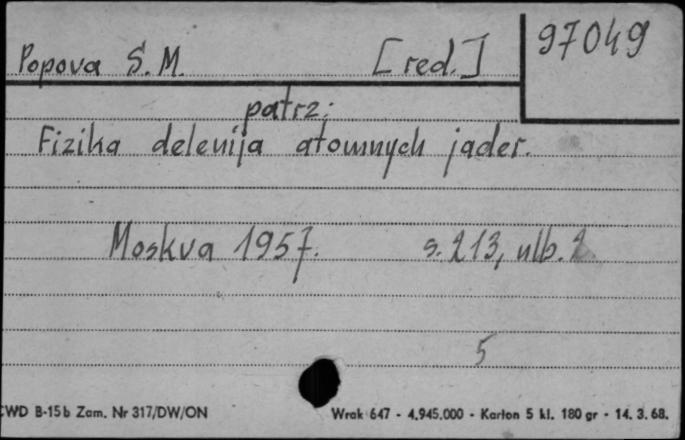 97049
Popova S. M. [red.]
patrz:
Fizika delenija atomnych jader.
Moskva 1957. s. 213, nlb. 2.
5
CWD B-15b Zam. Nr 317/DW/ON Wrak 647 - 4.945.000 - Karton 5 kl. 180 gr - 14. 3. 68.